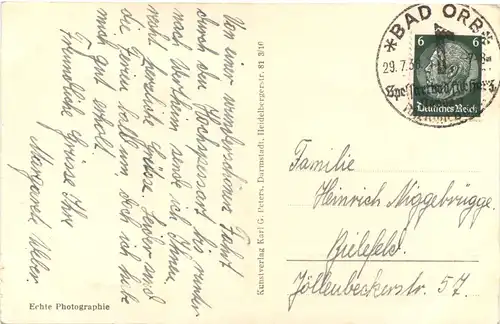 Von einer wunderschönen Fahrt
durch den Hochspessart bis runter
nach Wertheim sende ich Ihnen
recht herzliche Grüße. Leider sind
die Ferien bald um doch ich habe
mich gut erholt.
Freundliche Grüsse Ihre
Margaret Weber.
Echte Photographie
Kunstverlag Karl G. Peters, Darmstadt, Heidelbergerstr. 81 3/10
* BAD ORB
29.7.3
6 6
Deutsches Reich
Familie
Heinrich Niggebrügge
Bielefeld.
Jöllenbeckerstr. 57.